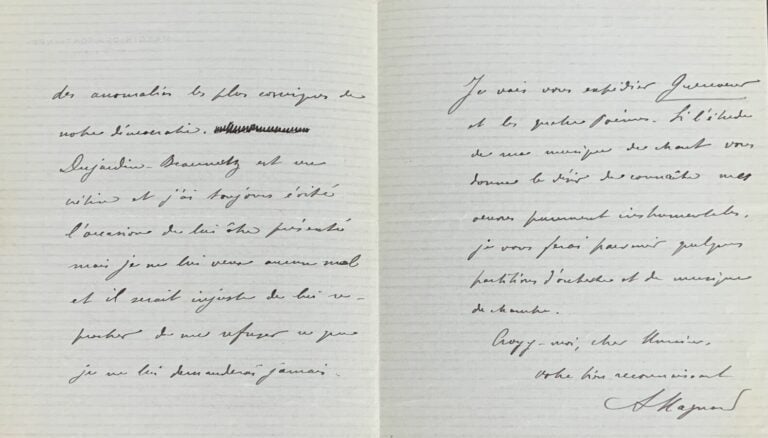 des anomalies les plus comiques de
notre démocratie.
Dujardin-Beaumetz est un
crétin et j'ai toujours évité
l'occasion de lui être présenté
mais je ne lui veux aucun mal
et il serait injuste de lui re-
procher de me refuser ce que
je ne lui demanderai jamais.
Je vais vous expédier Guercoeur
et les quatre Poèmes. Si l'étude
de ma musique de chant vous
donne le désir de connaître mes
oeuvres purement instrumentales,
je vous ferai parvenir quelques
partitions d'orchestre et de musique
de chambre.
Croyez-moi, cher Monsieur,
votre bien reconnaissant
A Magnard